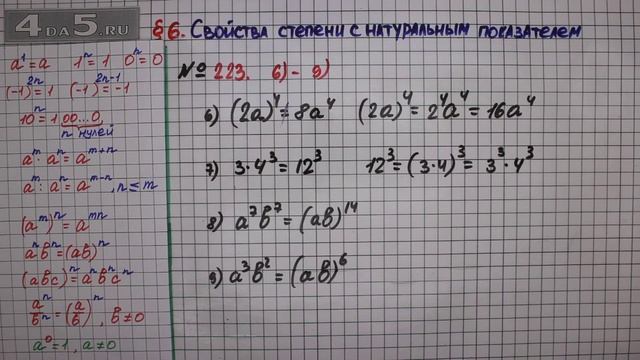 4DA5.RU
§6. Свойства степени с натуральным показателем
a¹=a 1ⁿ=1 0ⁿ=0
(-1)²ⁿ=1 (-1)²ⁿ⁻¹=-1
10ⁿ=1 00...0,
n нулей
aᵐ·aⁿ=aᵐ⁺ⁿ
aᵐ:aⁿ=aᵐ⁻ⁿ, n≤m
(aᵐ)ⁿ=aᵐⁿ
aⁿbⁿ=(ab)ⁿ
(abc)ⁿ=aⁿbⁿcⁿ
aⁿ/bⁿ=(a/b)ⁿ, b≠0
a⁰=1, a≠0
№ 223. 6)-9)
6) (2a)⁴=8a⁴ (2a)⁴=2⁴a⁴=16a⁴
7) 3·4³=12³ 12³=(3·4)³=3³·4³
8) a⁷b⁷=(ab)¹⁴
9) a³b²=(ab)⁶